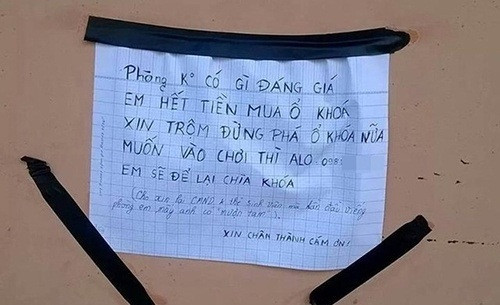 Phòng K° CÓ GÌ ĐÁNG GIÁ
EM HẾT TIỀN MUA Ổ KHOÁ
XIN TRỘM ĐỪNG PHÁ Ổ KHÓA NỮA
MUỐN VÀO CHƠI THÌ ALO 098
EM SẼ ĐỂ LẠI CHÌA KHÓA
(Cho xin lại CMND, thẻ sinh viên mà
phòng em này anh có "mượn tạm").
XIN CHÂN THÀNH CẢM ƠN!